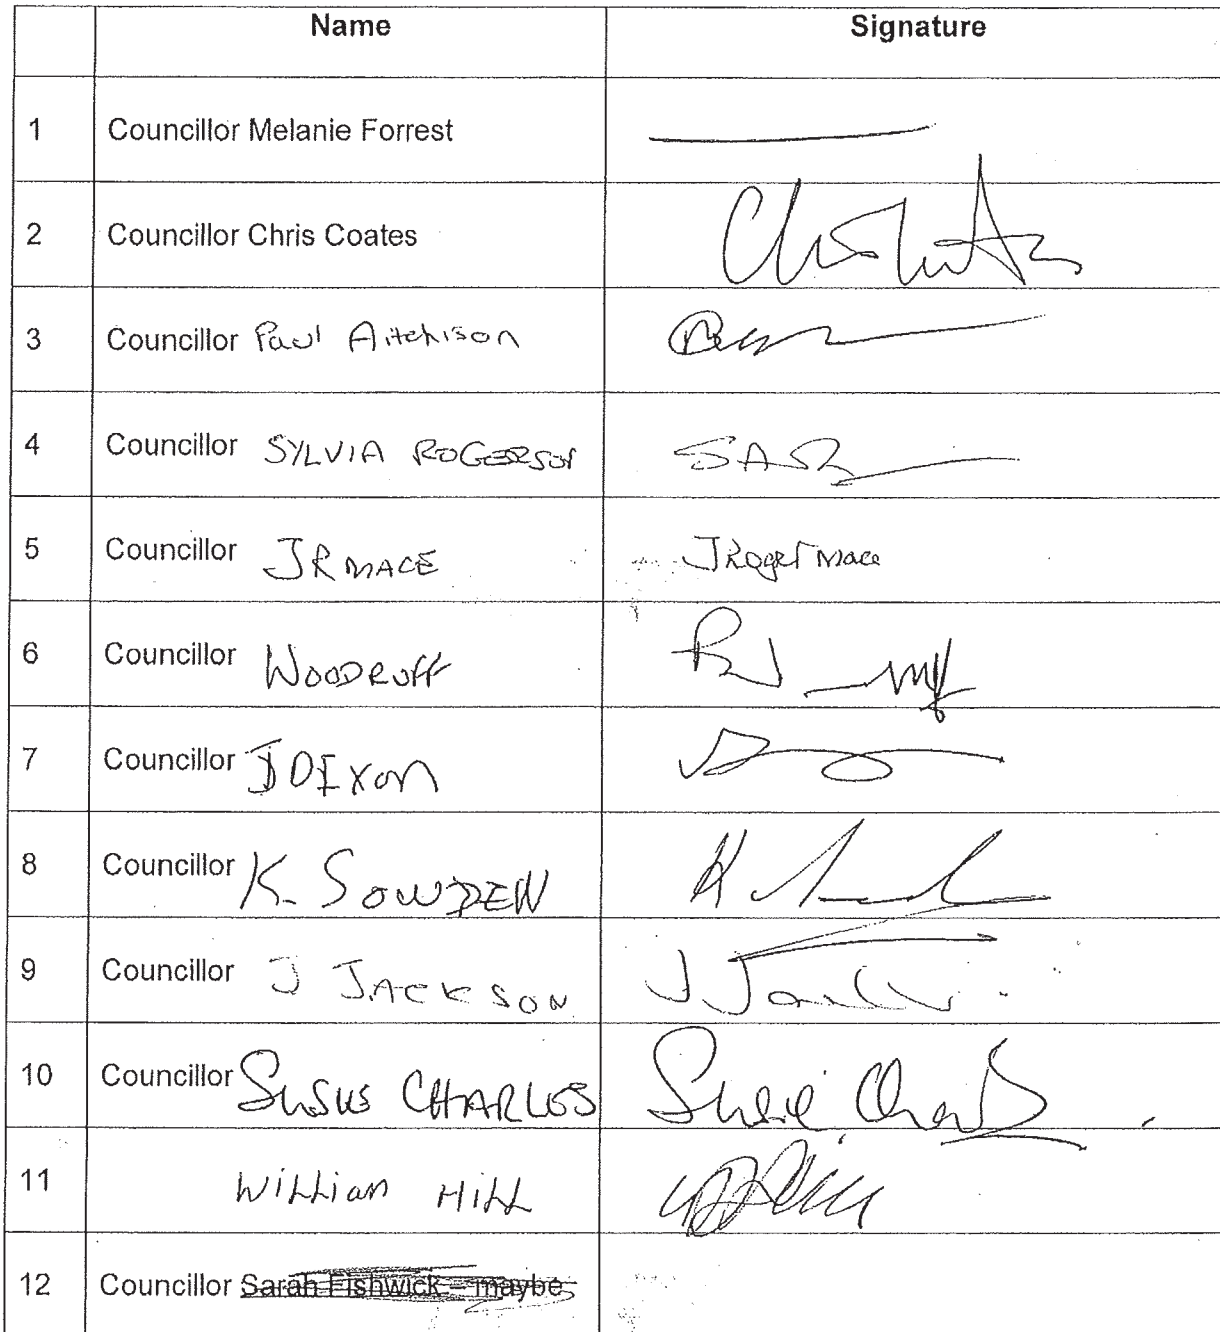 Name Signature
1 Councillor Melanie Forrest
2 Councillor Chris Coates
3 Councillor Paul Aitchison
4 Councillor SYLVIA ROGERSON SAR
5 Councillor JR MACE J Roger Mace
6 Councillor WOODRUFF
7 Councillor J DIXON
8 Councillor K. SOWDEN
9 Councillor J JACKSON
10 Councillor SUSIE CHARLES Susie Charles
11 WILLIAM HILL
12 Councillor Sarah Fishwick – maybe